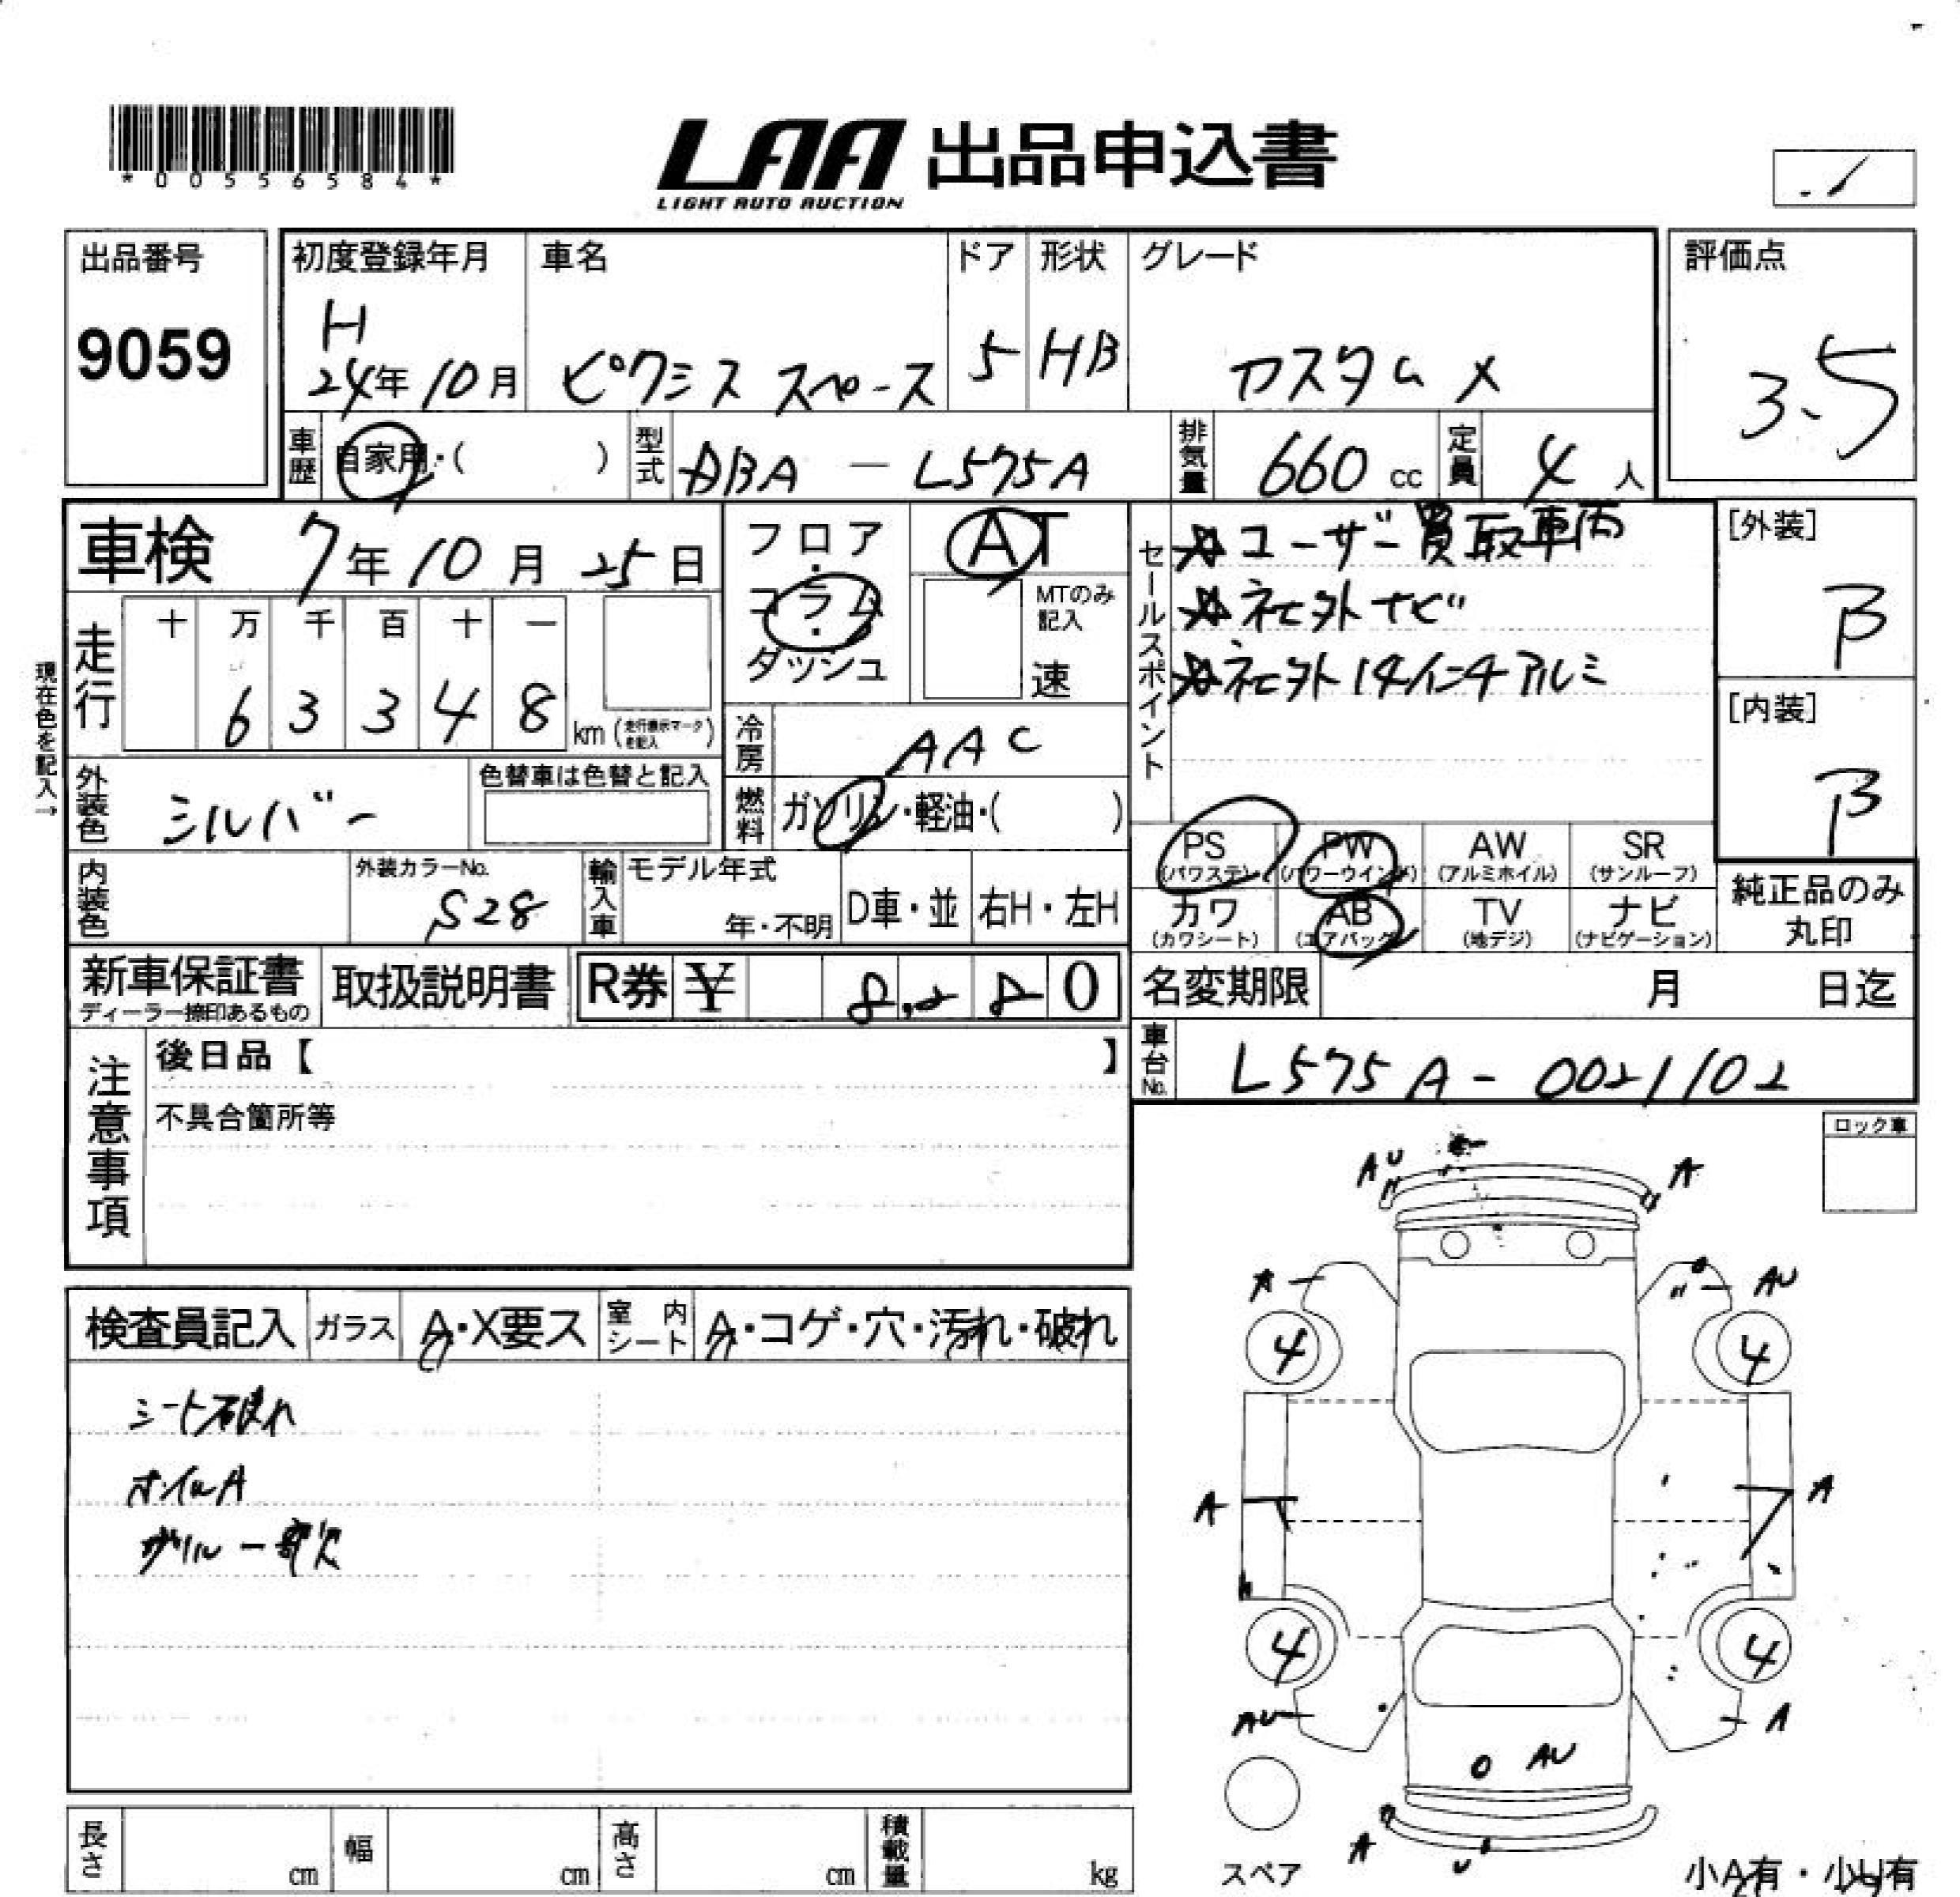 *00556584*
LAA 出品申込書
LIGHT AUTO AUCTION
出品番号
9059
初度登録年月
H
24年10月
車名
ピクシス スペース
ドア
5
形状
HB
グレード
カスタム X
評価点
3.5
車歴 自家用・( )
型式 DBA - L575A
排気量 660 cc
定員 4 人
車検 7年10月25日
フロア・コラム・ダッシュ
AT
MTのみ記入
速
セールスポイント
☆ユーザー買取車両
☆社外ナビ
☆社外14インチアルミ
[外装]
B
[内装]
B
現在色を記入→
走行
十 万 千 百 十 一
6 3 3 4 8 km (走行表示マークを記入)
冷房 AAC
燃料 ガソリン・軽油・( )
外装色 シルバー
色替車は色替と記入
内装色
外装カラーNo.
S28
輸入車 モデル年式
年・不明
D車・並
右H・左H
PS (パワステ)
PW (パワーウインド)
AW (アルミホイル)
SR (サンルーフ)
カワ (カワシート)
AB (エアバッグ)
TV (地デジ)
ナビ (ナビゲーション)
純正品のみ丸印
新車保証書
ディーラー捺印あるもの
取扱説明書
R券 ¥ 8,280
名変期限 月 日迄
車台No. L575A-0021102
注意事項
後日品【 】
不具合箇所等
ロック車
検査員記入
ガラス A・X要ス
室内シート A・コゲ・穴・汚れ・破れ
シート破れ
ホイルA
グリル一部欠
AU
A
A
AU
4
4
A
A
4
4
AU
A
AU
A
U
スペア
小A有・小U有
長さ cm
幅 cm
高さ cm
積載量 kg